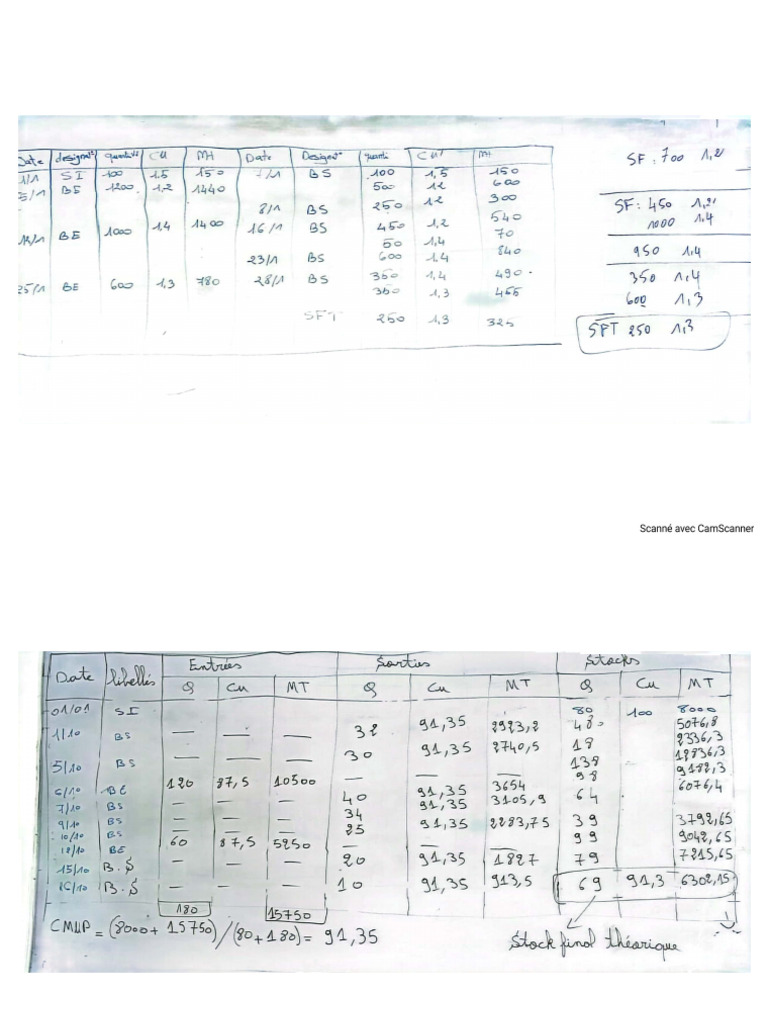 Date designat° quantité CU Mt Date Designat° quanti CU Mt
1/1 SI 100 1.5 150 7/1 BS 100 1,5 150
5/1 BE 1200 1,2 1440 500 12 600
8/1 BS 250 12 300
BE 1000 1.4 1400 16/1 BS 450 1,2 540
50 1,4 70
23/1 BS 600 1.4 840
25/1 BE 600 1,3 780 28/1 BS 350 1,4 490
350 1.3 455
SFT 250 1,3 325
SF : 700 1,2
SF : 450 1,2
1000 1.4
950 1.4
350 1,4
600 1,3
SFT 250 1,3
Scanné avec CamScanner
Entrées Sorties Stocks
Date libellés Q Cu MT Q Cu MT Q Cu MT
01/01 SI 80 100 8000
1/10 BS — — — 32 91,35 2923,2 48 5076,8
5/10 BS — — — 30 91,35 2740,5 18 2336,3
6/10 BE 120 87,5 10500 — — — 138 12836,3
7/10 BS — — — 40 91,35 3654 98 9182,3
9/10 BS — — — 34 91,35 3105,9 64 6076,4
10/10 BS — — — 25 91,35 2283,75 39 3792,65
BE 60 87,5 5250 — 99 9042,65
15/10 B.S — — — 20 91,35 1827 79 7215,65
16/10 B.S — — — 10 91,35 913,5 69 91,3 6302,15
180 15750
CMUP = (8000 + 15750) / (80 + 180) = 91,35
Stock final théorique